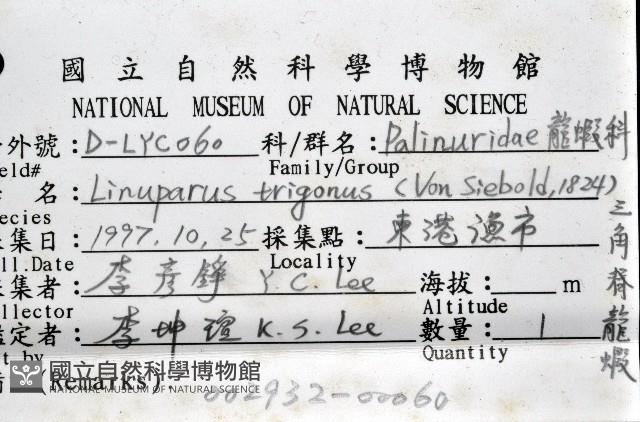 國立自然科學博物館
NATIONAL MUSEUM OF NATURAL SCIENCE
外號：D-LYC060 科/群名：Palinuridae 龍蝦科
eld# Family/Group
名：Linuparus trigonus (Von Siebold, 1824)
ecies
集日：1997.10,25 採集點：東港漁市
ll.Date Locality
集者：李彥錚 Y.C. Lee 海拔：m
llector Altitude
定者：李坤瑄 K.S. Lee 數量：1
t by Quantity
三角脊龍蝦
(Remarks)
國立自然科學博物館
NATIONAL MUSEUM OF NATURAL SCIENCE
002932-00060